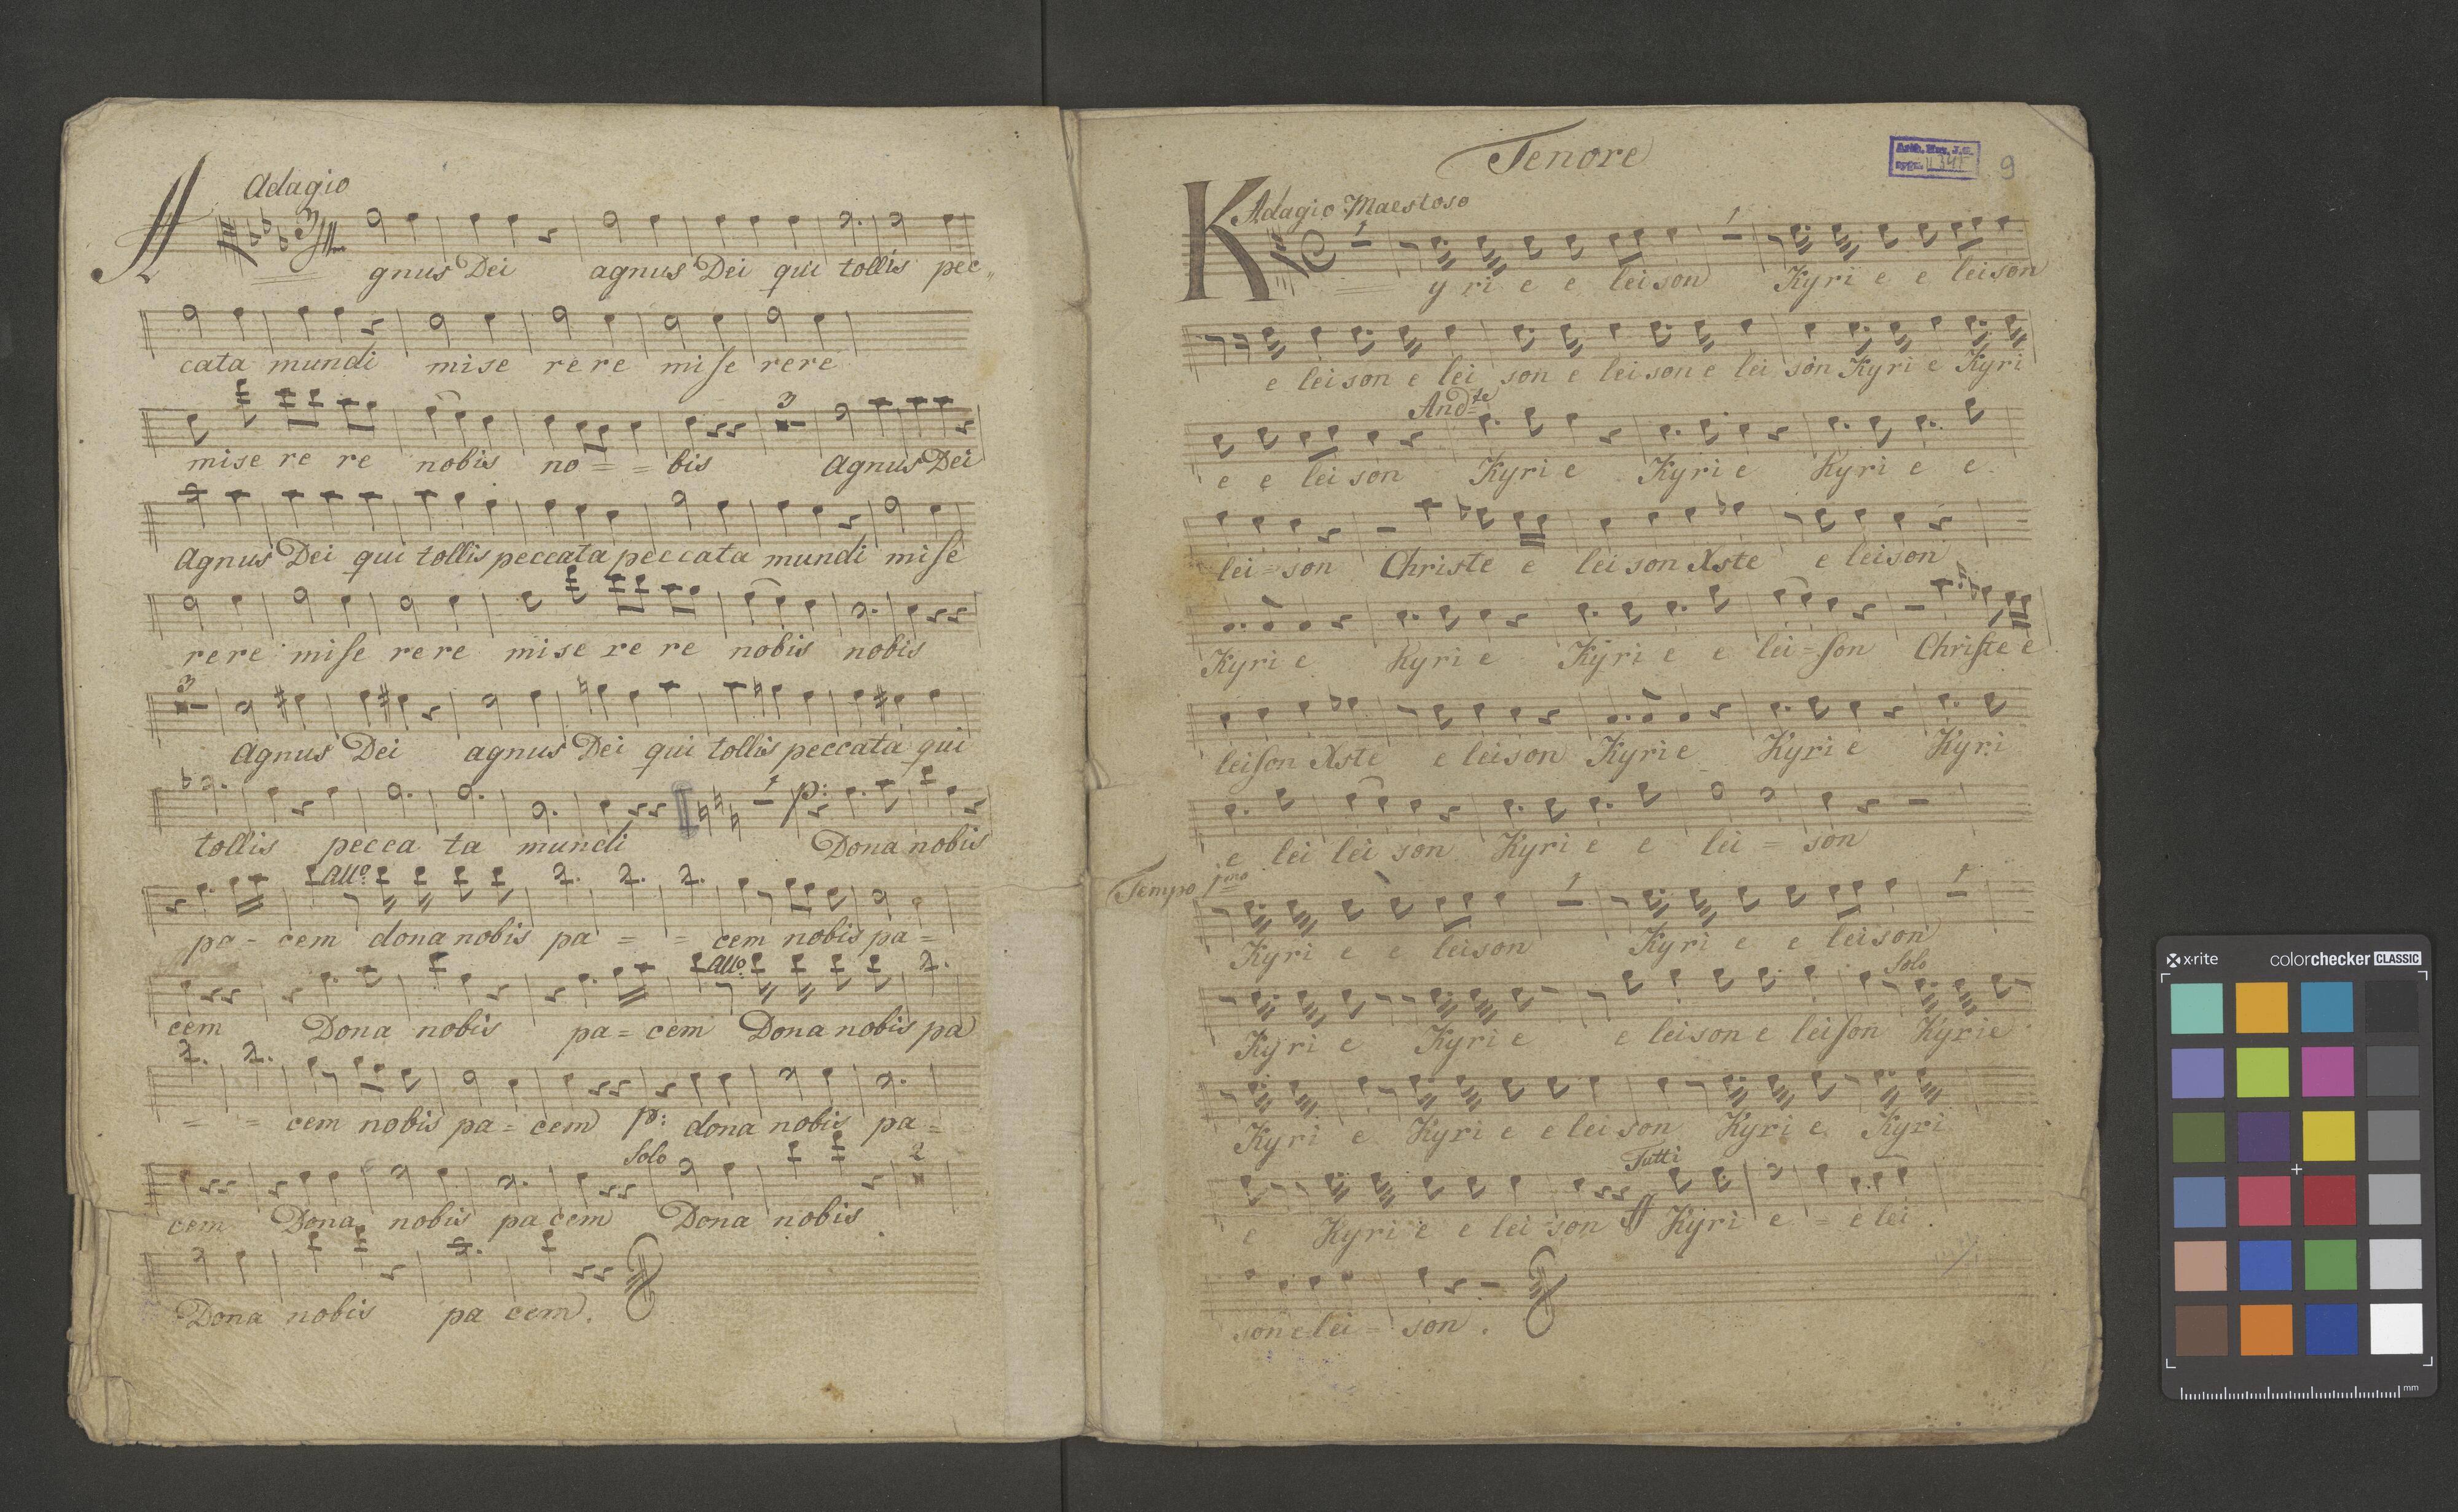 Adagio
A
gnus Dei agnus Dei qui tollis pec„
cata mundi mise rere miſe rere
3
mise re re nobis no = = bis Agnus Dei
Agnus Dei qui tollis peccata peccata mundi miſe
rere miſe rere mise re re nobis nobis
3
Agnus Dei agnus Dei qui tollis peccata qui
1 p:
tollis pecca ta mundi Dona nobis
allo.
pa - cem dona nobis pa = = cem nobis pa =
allo.
cem Dona nobis pa = cem Dona nobis pa
= = cem nobis pa = cem p: dona nobis pa =
Solo 2
cem Dona nobis pa cem Dona nobis
Dona nobis pa cem.
Tenore
9
K Adagio Maestoso
1 1
y ri e e leison Kyri e e leison
e leison e lei son e leison e lei son Kyri e Kyri
Andte
e e lei son Kyri e Kyri e Kyri e e
lei = son Christe e leison Xste e leison
Kyri e Kyri e Kyri e e lei = ſon Chriſte e
leiſon Xste e leison Kyri e Kyri e Kyri
e lei lei son Kyri e e lei = son
Tempo 1mo
1 1
Kyri e e leison Kyri e e leison
Solo
Kyri e Kyri e e leison e leiſon Kyrie
Kyri e Kyri e e lei son Kyri e Kyri
Tutti
e Kyri e e lei = son ff Kyri e = e lei
son e lei = son.
x-rite colorchecker CLASSIC
mm